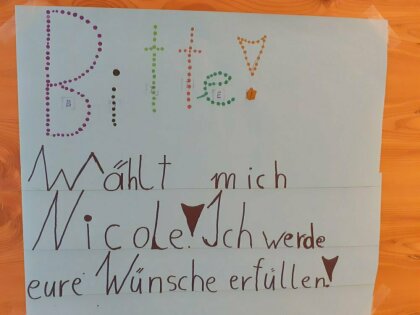 Bitte!
Wählt mich
Nicole! Ich werde
eure Wünsche erfüllen!